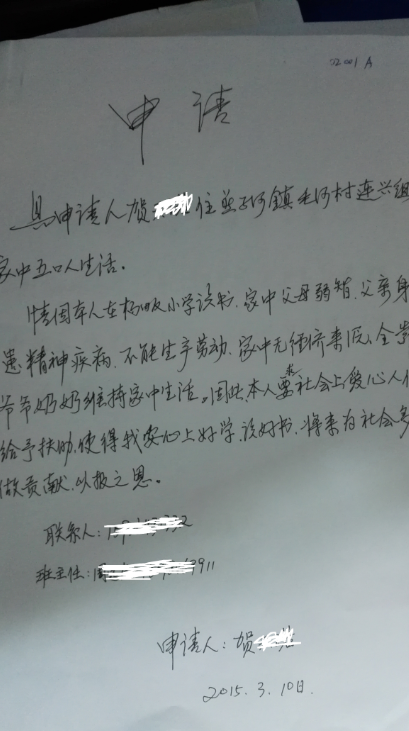 申请
具申请人贺 住 河鎮毛河村连兴组
家中五口人生活。
情因本人在杨 小学读书.家中父母弱智.父亲身
患精神疾病.不能生产劳动.家中无经济来 .全
爷爷奶奶维持家中生活。因此本人要求社会上爱心人
给予扶助.使得我安心上好学读好书.将来为社会多
做贡献.以报之恩。
联系人: 332
班主任: 7911
申请人:贺
2015.3.10日.